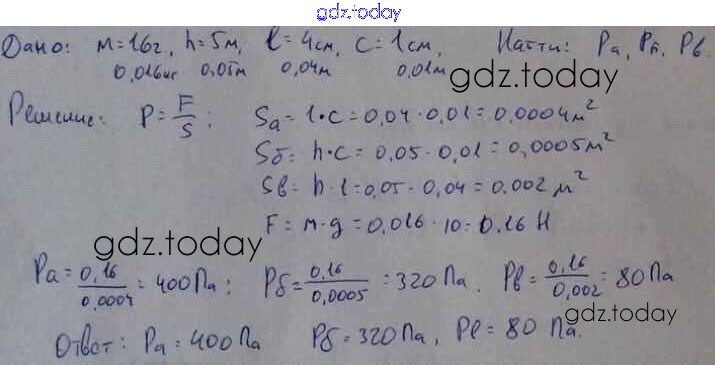 gdz.today
Дано: m=16г, h=5м, l=4см, c=1см, Найти: Pа, Pб, Pв.
0,016кг 0,05м 0,04м 0,01м
gdz.today
Решение: P=F/S; Sа=l·c=0,04·0,01=0,0004м²
Sб=h·c=0,05·0,01=0,0005м²
Sв=h·l=0,05·0,04=0.002м²
F=m·g=0,016·10=0.16 Н
gdz.today
Pа=0,16/0,0004=400Па; Pб=0,16/0,0005=320Па. Pв=0,16/0,002=80Па
gdz.today
Ответ: Pа=400Па Pб=320Па, Pв=80 Па.